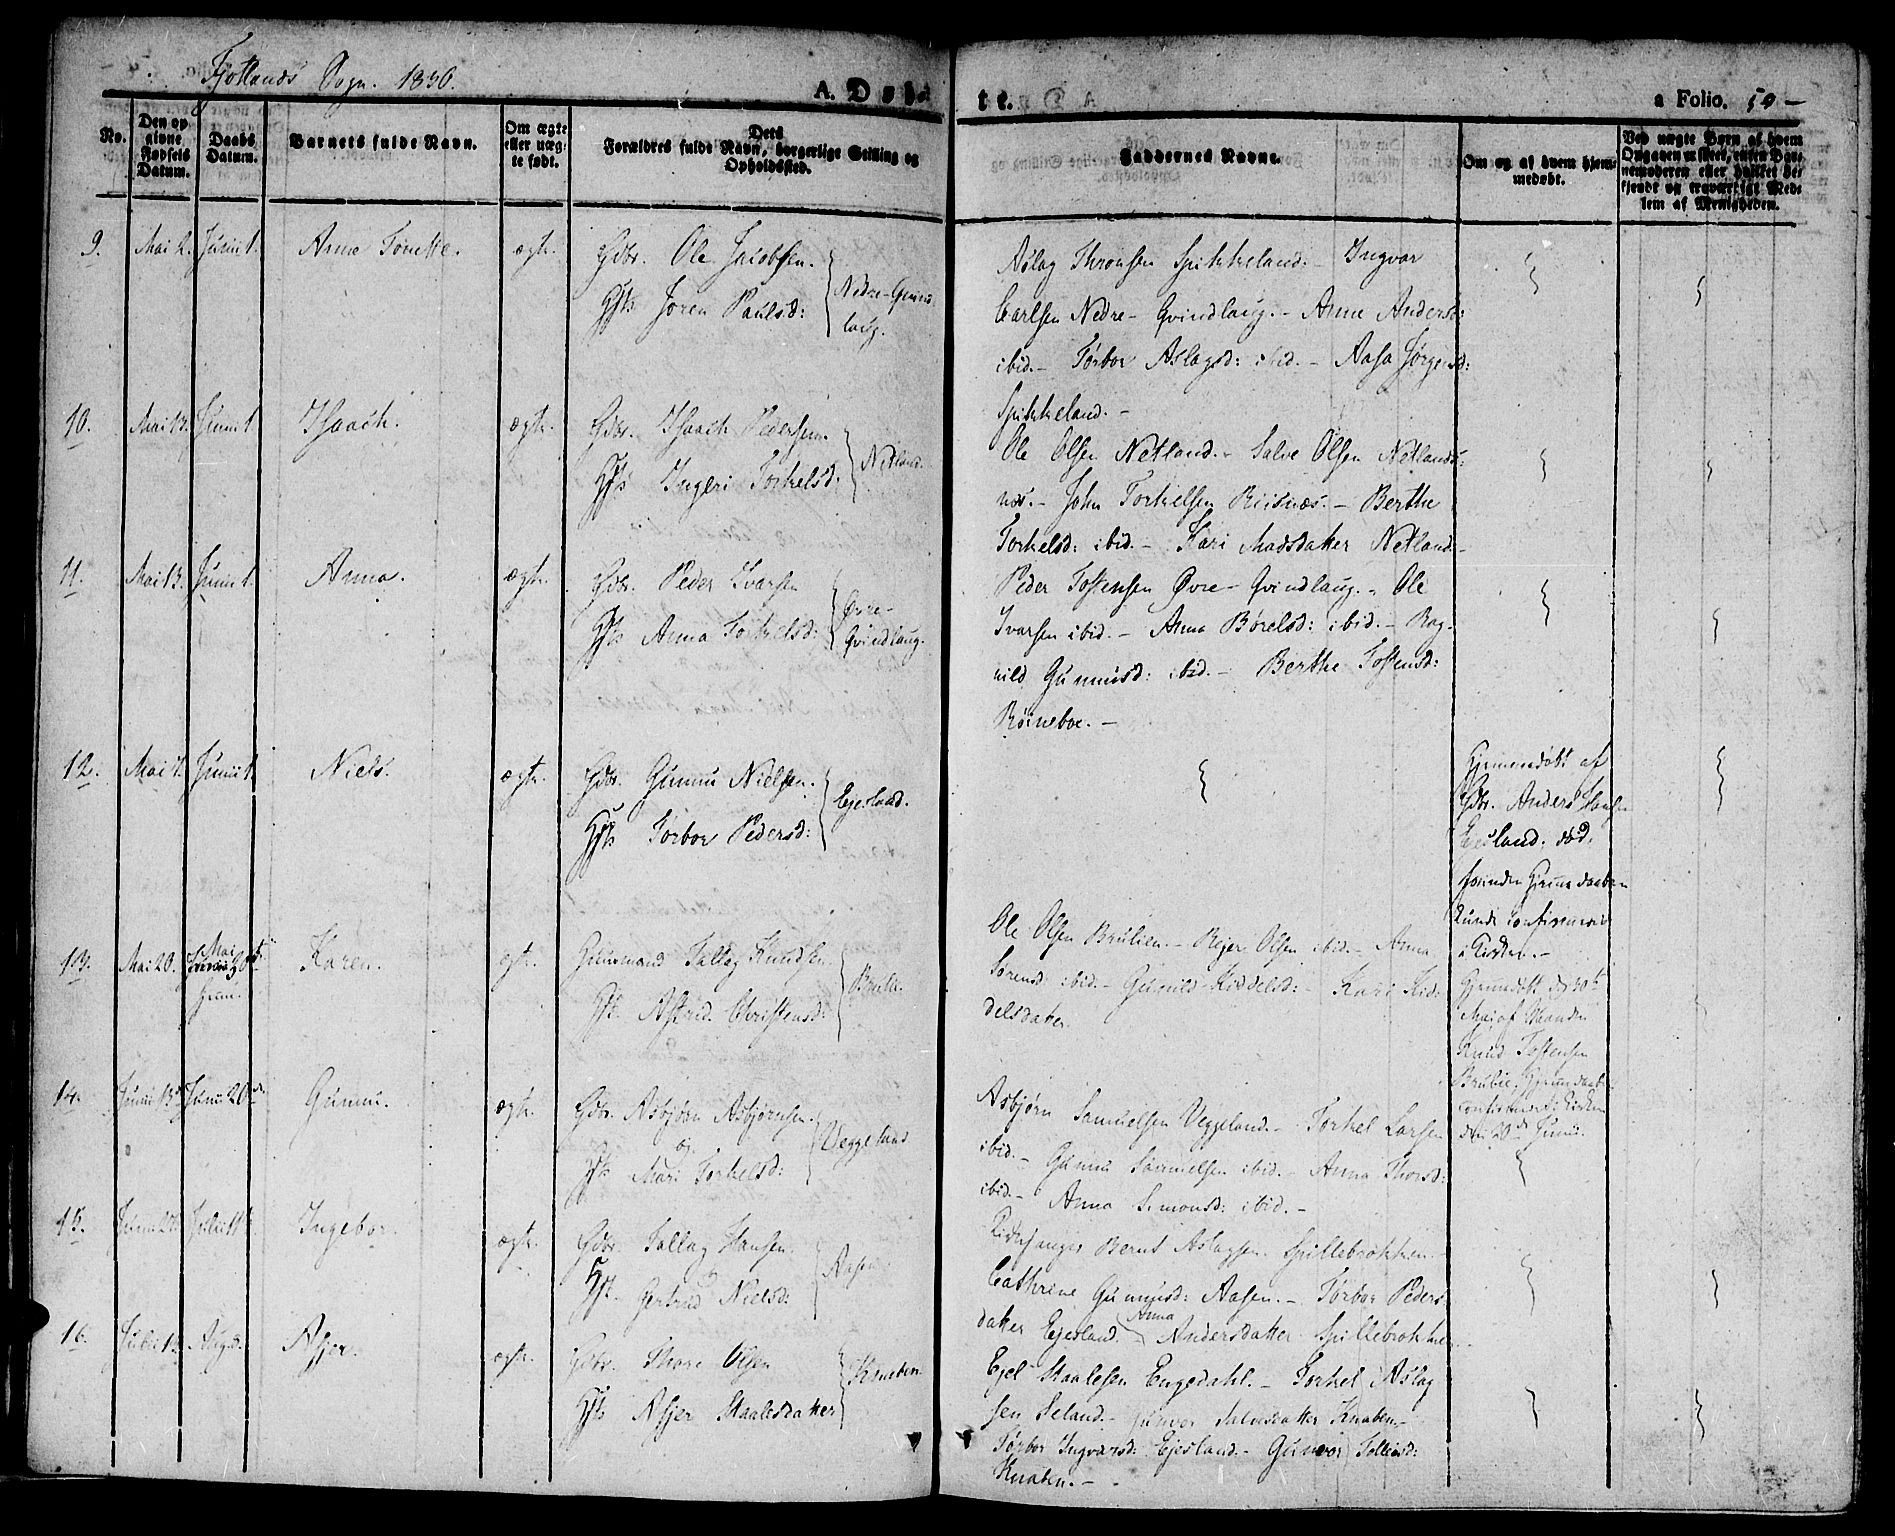 Fjotlands Sogn. 1836.
A. Døbte. a Folio. 50 -
No.
Den op-
givne
Fødsels
Datum.
Daabs
Datum.
Barnets fulde Navn.
Om ægte
eller uæg-
te født.
Dets
Forældres fulde Navn, borgerlige Stilling og
Opholdssted.
Faddernes Navne.
Om og af hvem hjem-
medøbt.
Ved uægte Børn af hvem
Opgaven er skeet, enten Bar-
nemoderen eller hvilket be-
kjendt og troværdigt Med-
lem af Menigheden.
9. Mai 2. Junii 1. Anne Tonette. ægte.
Gdbr. Ole Jacobsen.
Hst. Joren Paulsd:
Nedre-Gvind-
laug.
Aslag Thronsen Spikkeland. - Ingvar
Carlsen Nedre - Gvindlaug. - Anne Andersd:
ibid. - Torbor Aslagsd: ibid. - Aasa Jørgensd:
Spikkeland. -
10. Mai 13. Junii 1. Isaach. ægte.
Gdbr. Isaach Pedersen.
Hst. Ingeri Torkelsd:
Netland.
Ole Olsen Netland. - Salve Olsen Netlands-
næs. - John Torkelsen Risnæs. - Berthe
Torkelsd: ibid. - Kari Madsdatter Netland. -
11. Mai 13. Junii 1. Anna. ægte.
Gdbr. Peder Ivarsen
Hst. Anna Torkelsd:
Øvre-
Gvindlaug.
Peder Tostensen Øvre - Gvindlaug. - Ole
Ivarsen ibid. - Anna Børelsd: ibid. - Rag-
nild Gunnusd: ibid. - Berthe Tostensd:
Røineboe. -
12. Mai Junii 1. Niels. ægte.
Gdbr. Gunnu Nielsen.
Hst. Torbor Pedersd:
Ejesland.
Hjemmedøbt af
Gdbr. Anders Hansen
Ejesland, død,
forinden Hjemmedaaben
kunde confirmeres
i Kirken. -
13. Mai 20. Mai 30te Hjem. Karen. ægte.
Tallag Knudsen
Hst. Astrid Christensd:
Brulie.
Ole Olsen Brulien. - Rejer Olsen ibid. - Anna
Sørensd: ibid. - Gunild Kiddelsd: - Kari Kid-
delsdatter.
Hjemdøbt den 30te
Mai af Manden
Knud Tostensen
Brulie, Hjemmedaaben
confirmert i Kirken
den 20de Junii.
14. Junii 13de Junii 20de Gunnu. ægte.
Gdbr. Asbjørn Asbjørnsen.
og
Hst. Mari Torkelsd:
Veggeland
Asbjørn Samuelsen Veggeland. - Torkel Larsen
ibid. - Gunnu Samuelsen ibid. - Anna Thorsd:
ibid. - Anna Simonsd: ibid. -
15. Ingebor. ægte.
Gdbr. Tallag Hansen.
Hst. Gertrud Nielsd:
Aasen.
Kirkesanger Bernt Aslagsen Spillebrokken. -
Cathrine Gunnusd: Aasen. - Torbor Peders-
datter Ejesland. - Anna Andersdatter Spillebrokken
16. Aug. Asjer. ægte.
Gdbr. Thore Olsen
Hst. Asjer Staalesdatter
Knaben.
Ejel Staalesen Engedahl. - Torkel Aslag-
sen Seland. - Gunvor Salvesdatter Knaben. -
Torbor Ingvarsd: Ejesland. - Gunvor Tollevsd:
Knaben. -